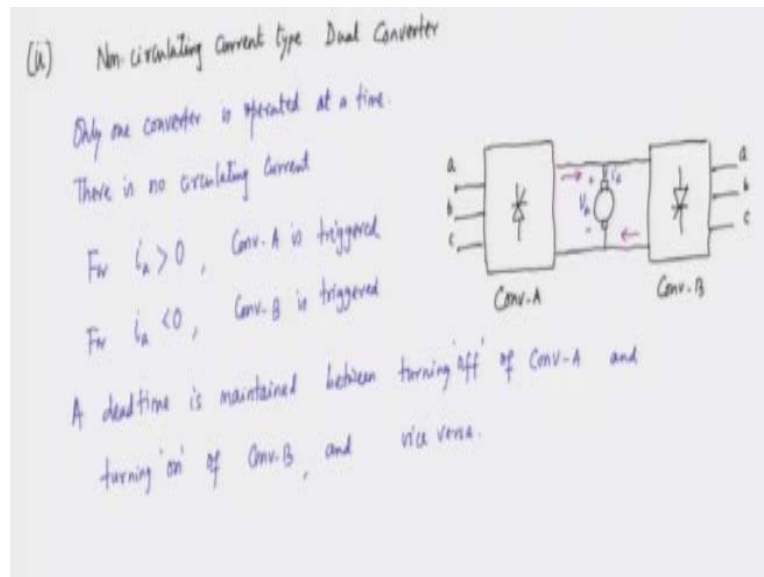 (ii) Non-circulating current type Dual Converter
Only one converter is operated at a time.
There is no circulating current
For ia > 0, Conv-A is triggered
For ia < 0, Conv-B is triggered
A deadtime is maintained between turning 'off' of Conv-A and
turning 'on' of Conv-B, and vice versa.
a
b
c
+ ia
Va
-
a
b
c
Conv-A
Conv-B